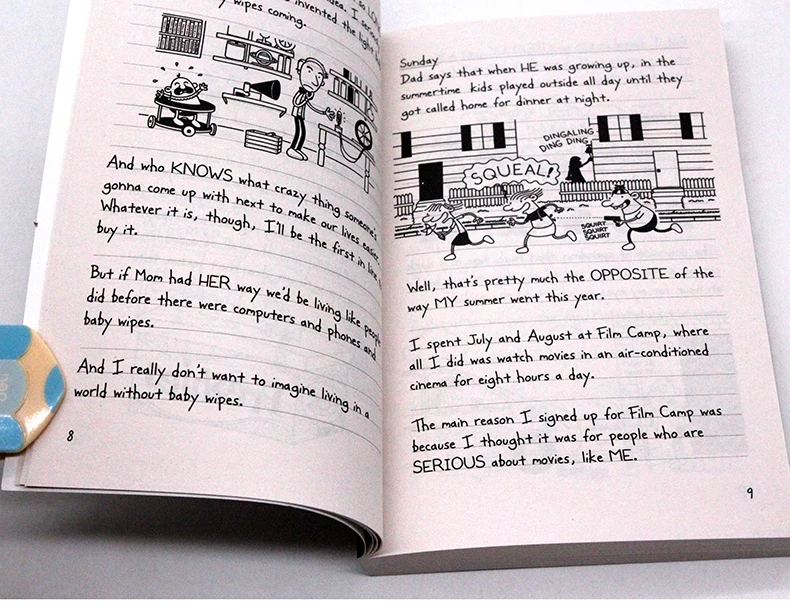 so
idea. I
invented the light
wipes coming.
And who KNOWS what crazy thing someone's
gonna come up with next to make our lives easier.
Whatever it is, though, I'll be the first in line
buy it.
But if Mom had HER way we'd be living like people
did before there were computers and phones and
baby wipes.
And I really don't want to imagine living in a
world without baby wipes.
8
Sunday
Dad says that when HE was growing up, in the
summertime kids played outside all day until they
got called home for dinner at night.
DINGALING
DING DING
SQUEAL!
SQUIRT
SQUIRT
SQUIRT
Well, that's pretty much the OPPOSITE of the
way MY summer went this year.
I spent July and August at Film Camp, where
all I did was watch movies in an air-conditioned
cinema for eight hours a day.
The main reason I signed up for Film Camp was
because I thought it was for people who are
SERIOUS about movies, like ME.
9